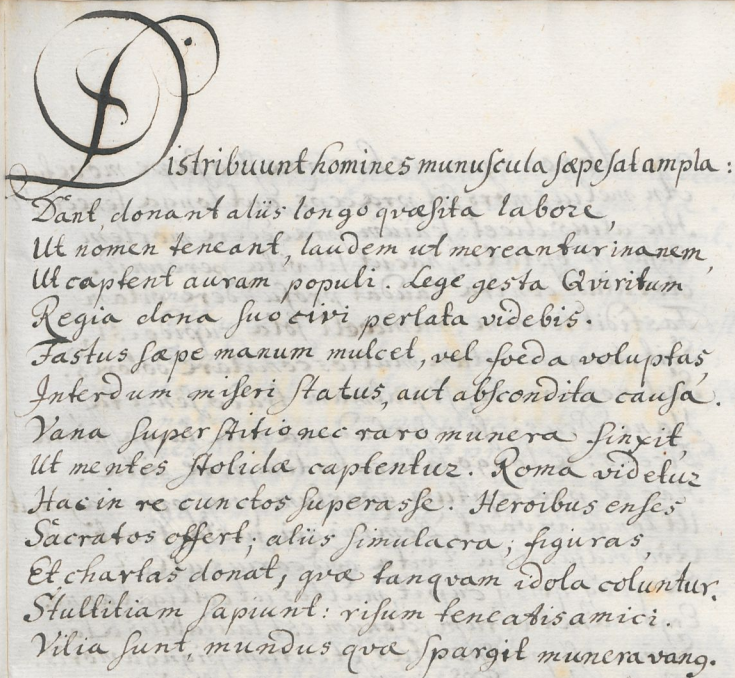 Distribuunt homines munuſcula ſæpe ſat ampla:
Dant, donant aliis longo quæſita labore,
Ut nomen teneant, laudem ut mereantur inanem,
Ut captent auram populi. Lege gesta Qviritum
Regia dona ſuo civi perlata videbis.
Fastus ſæpe manum mulcet, vel foeda voluptas,
Interdum miſeri ſtatus, aut abſcondita cauſa.
Vana ſuperſtitio nec raro munera finxit,
Ut mentes ſtolidæ captentur. Roma videtur
Hac in re cunctos superasse. Heroibus enſes
Sacratos offert; aliis ſimulacra; figuras,
Et chartas donat, qvæ tanqvam idola coluntur.
Stultitiam sapiunt: risum teneatis amici.
Vilia ſunt, mundus qvæ ſpargit munera vanꝯ.